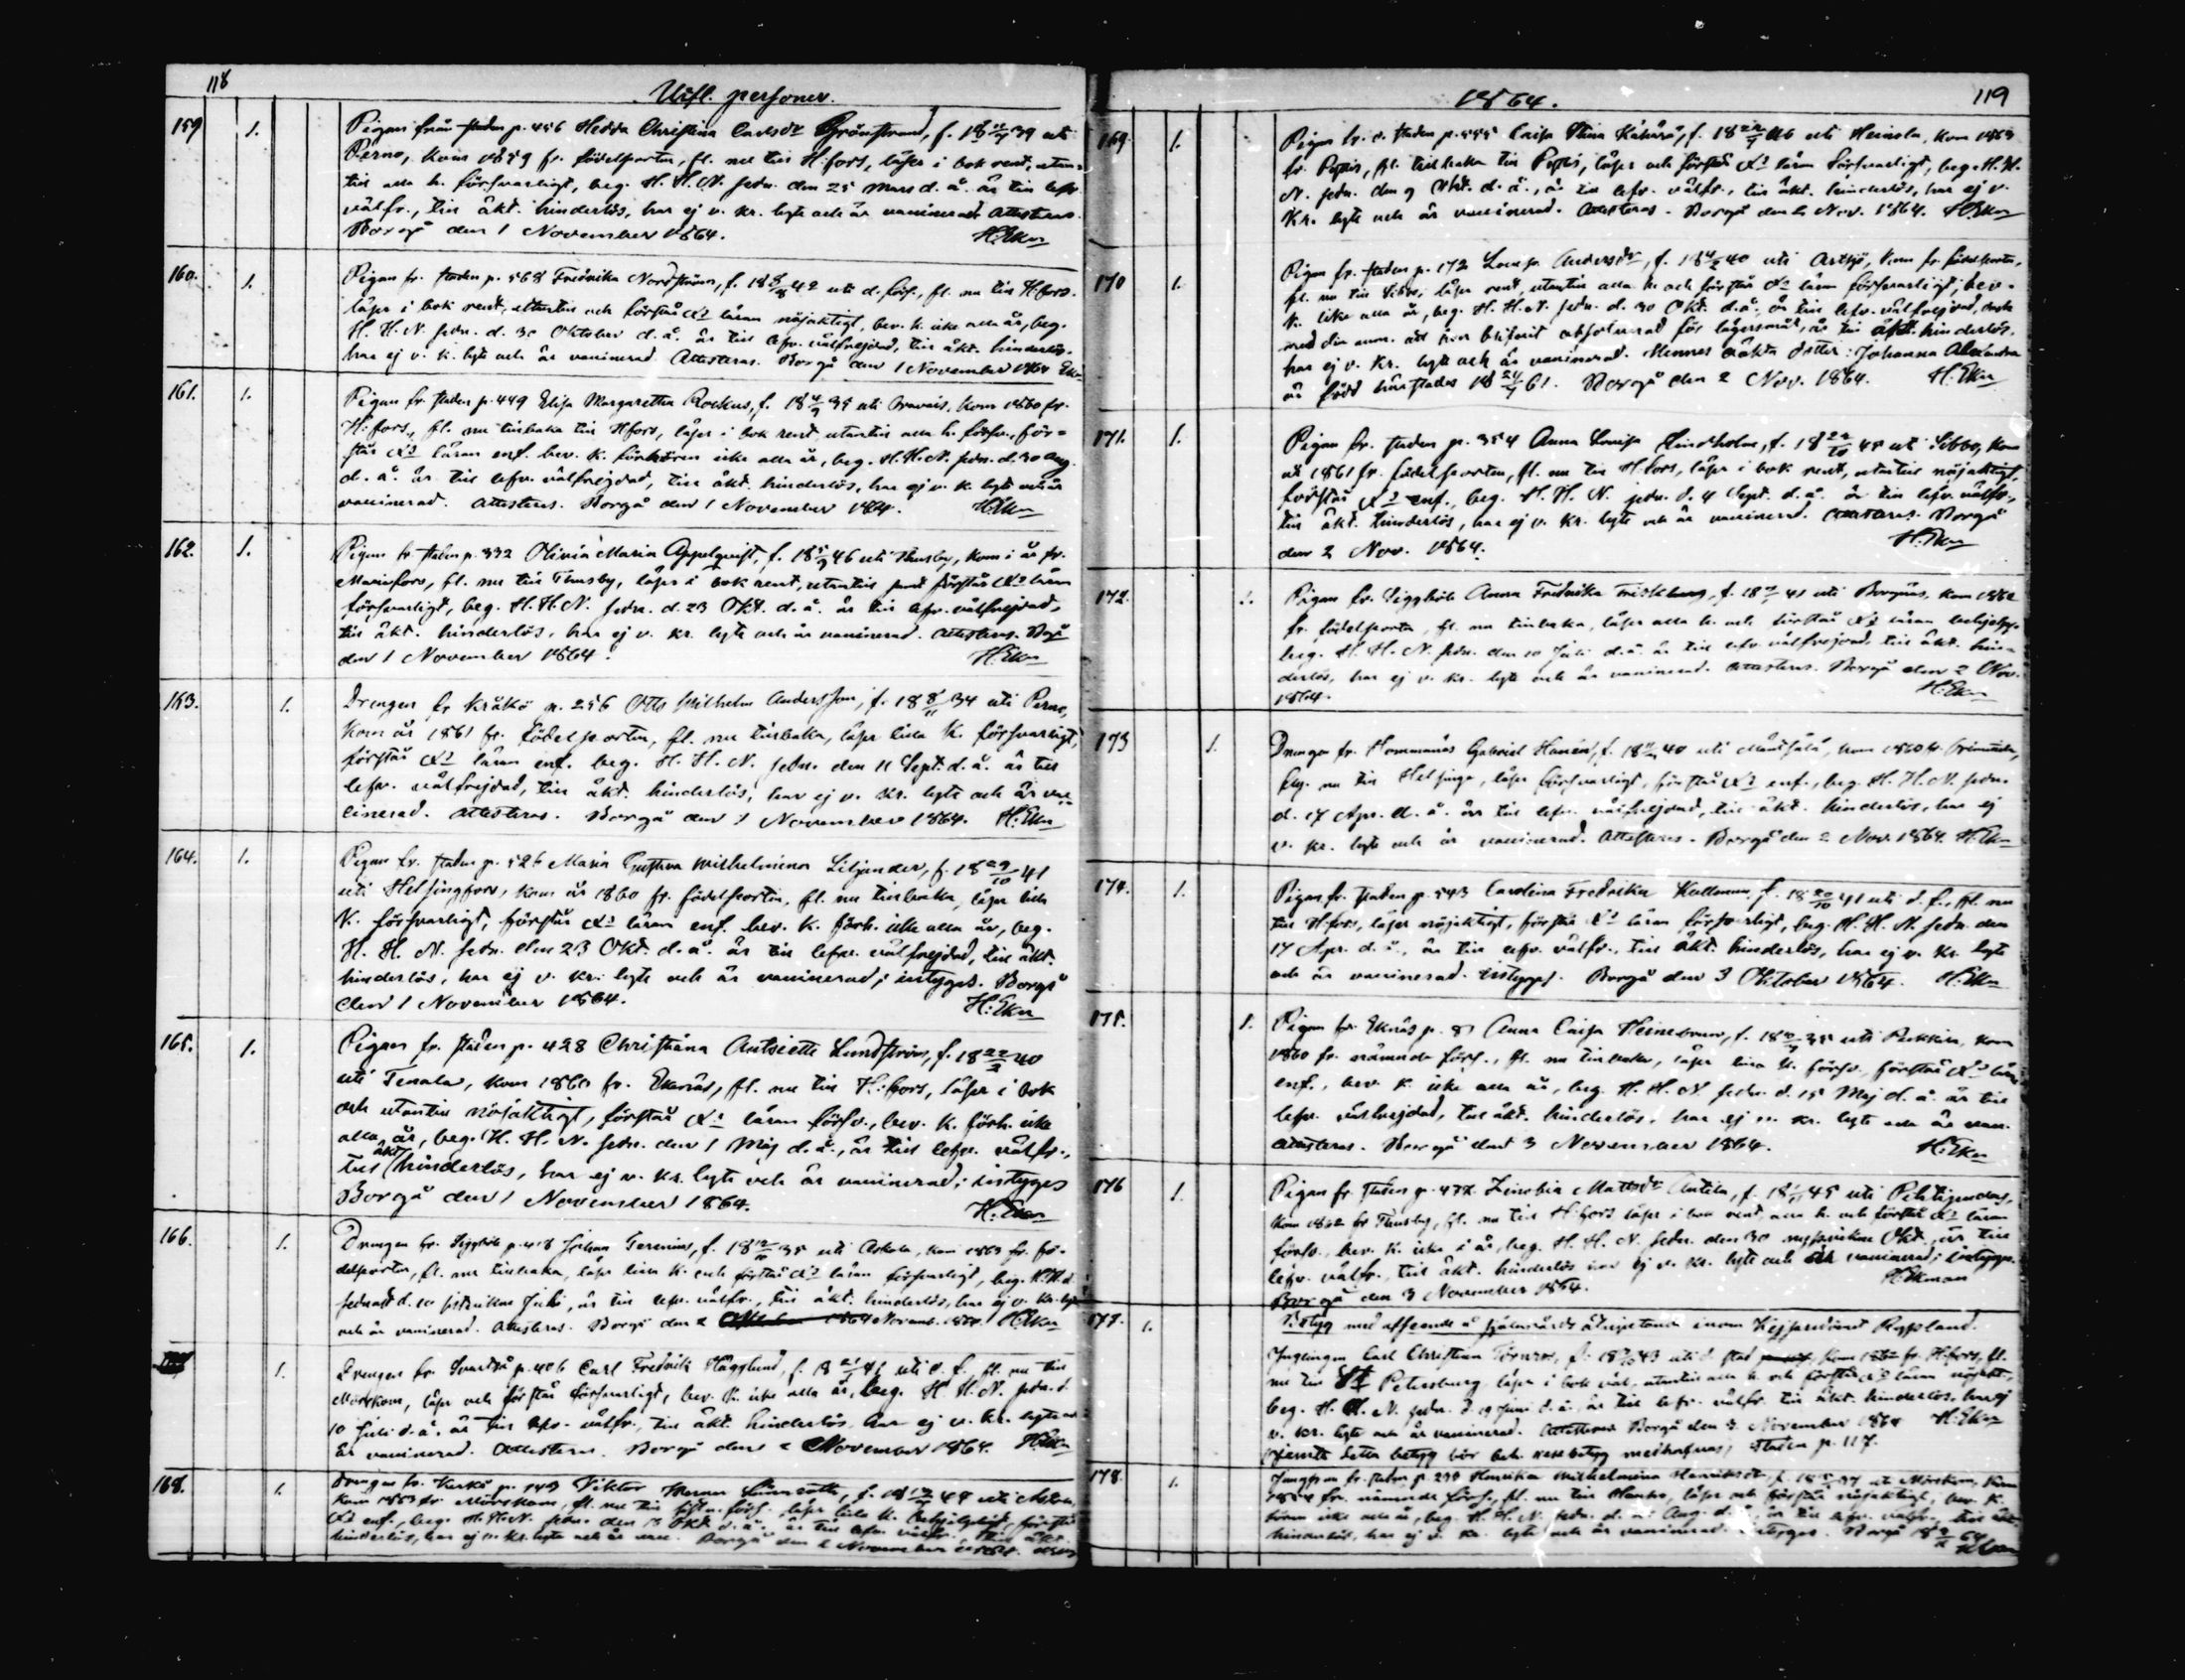 118
Utfl. personer.
159 1. Pigan från staden p. 456 Hedda Christina Carlsdr Grönstrand, f. 18 39 uti
Perno, kom 1859 fr. födelseorten, fl. nu till H:fors, läser i bok rent, utan-
till alla h. försvarligt, beg. H. H. N. sedn. den 25 Mars d. å. är till lefv.
välfr., till äkt. hinderlös, har ej v. kr. lyte och är vaccinerad. Attesteras.
Borgå den 1 November 1864. H:Ekm
160. 1. Pigan fr. staden p. 568 Fredrika Nordström, f. 18 42 uti d. förs., fl. nu till H:fors.
läser i bok rent, utantill och förstår Xs läran nöjaktigt, bev. k. icke alla år, beg.
H. H. N. sedn. d. 30 Oktober d. å. är till lefv. välfrejdad, till äkt. hinderlös,
har ej v. k. lyte och är vaccinerad. Attesteras. Borgå den 1 November 1864 Ekm
161. 1. Pigan fr. staden p. 449 Elisa Margaretha Rockus, f. 18 35 uti Oravais, kom 1860 fr.
H:fors, fl. nu tillbaka till H:fors, läser i bok rent, utantill alla h. försv., för-
står Xs läran enf. bev. k. förhören icke alla år, beg. H. H. N. sedn. d. 30 Aug.
d. å. är till lefv. välfrejdad, till äkt. hinderlös, har ej v. k. lyte och är
vaccinerad. Attesteras. Borgå den 1 November 1864. H:Ekm
162. 1. Pigan fr. staden p. 332 Olivia Maria Appelqvist, f. 18 46 uti Thusby, kom i år fr.
Mariefors, fl. nu till Thusby, läser i bok rent, utantill samt förstår Xs läran
försvarligt, beg. H. H. N. sedn. d. 23 Okt. d. å. är till lefv. välfrejdad,
till äkt. hinderlös, har ej v. kr. lyte och är vaccinerad. Attesteras. Borgå
den 1 November 1864. H:Ekm
163. 1. Drengen fr. Kråkö p. 256 Otto Wilhelm Andersson, f. 18 8/11 34 uti Perno,
kom år 1861 fr. födelseorten, fl. nu tillbaka, läser lilla k. försvarligt,
förstår Xs läran enf. beg. H. H. N. sedn. den 11 Sept. d. å. är till
lefv. välfrejdad, till äkt. hinderlös, har ej v. kr. lyte och är vac-
cinerad. Attesteras. Borgå den 1 November 1864. H:Ekm
164. 1. Pigan fr. staden p. 526 Maria Gustava Wilhelmina Liljander, f. 18 29/10 41
uti Helsingfors, kom år 1860 fr. födelseorten, fl. nu tillbaka, läser lilla
K. försvarligt, förstår Xs läran enf. bev. k. förh. icke alla år, beg.
H. H. N. sedn. den 23 Okt. d. å. är till lefv. välfrejdad, till äkt.
hinderlös, har ej v. kr. lyte och är vaccinerad; intygas. Borgå
den 1 November 1864. H:Ekm
165. 1. Pigan fr. staden p. 428 Christina Antoiette Lundström, f. 18 22/2 40
uti Tenala, kom 1860 fr. Ekenäs, fl. nu till H:fors, läser i bok
och utantill nöjaktigt, förstår Xs läran försv., bev. k. förh. icke
alla år, beg. H. H. N. sedn. den 1 Maj d. å., är till lefv. välfr.,
till äkt. hinderlös, har ej v. kr. lyte och är vaccinerad; intygas
Borgå den 1 November 1864. H:Ekm
166. 1. Drengen fr. Siggböle p. 418 Johan Gerenius, f. 18 35 uti Askola, kom 1863 fr. fö-
delseorten, fl. nu tillbaka, läser lilla k. och förstår Xs läran försvarligt, beg. H. H. N.
sednast d. 10 sistvikne Juli, är till lefv. välfr., till äkt. hinderlös, har ej v. kr. lyte
och är vaccinerad. Attesteras. Borgå den 2 Novemb. 1864. H:Ekm
1. Drengen fr. Svartså p. 406 Carl Fredrik Hägglund, f. 18 uti d. f., fl. nu till
Mörskom, läser och förstår försvarligt, bev. k. icke alla år, beg. H. H. N. sedn. d.
10 Juli d. å. är till lefv. välfr., till äkt. hinderlös, har ej v. kr. lyte och
är vaccinerad. Attesteras. Borgå den 2 November 1864. H:Ekm
168. 1. Drengen fr. Kerkö p. 143 Viktor Werner f. 18 48 uti
kom 1863 fr. Mörskom, fl. nu till sistn. förs., läser lilla k. behjelpligt, förstår
Xs enf., beg. H. H. N. sedn. den Okt. d. å. är till lefv. välfr. till äkt.
hinderlös, har ej v. kr. lyte och är vacc. Borgå den 2 November 1864.
1864. 119
169. 1. Pigan fr. staden p. 555 Caisa Stina f. 18 46 uti Heinola, kom 1863
fr. Pyttis, fl. tillbaka till Pyttis, läser och förstår Xs läran försvarligt, beg. H. H.
N. sedn. den 9 Okt. d. å., är till lefv. välfr., till äkt. hinderlös, har ej v.
Kr. lyte och är vaccinerad. Attesteras. Borgå den 2 Nov. 1864. H:Ekm
170 1. Pigan fr. staden p. 172 Lovisa Andersdr, f. 18 40 uti Artsjö, kom fr. födelseorten,
fl. nu till Sibbo, läser rent, utantill alla h. och förstår Xs läran försvarligt, bev.
k. icke alla år, beg. H. H. N. sedn. d. 30 Okt. d. å., är till lefv. välfrejdad, dock
med den anm. att hon blifvit absolverad för lägersmål, är till äkt. hinderlös,
har ej v. kr. lyte och är vaccinerad. Hennes oäkta dotter: Johanna Alexandra
är född härstädes 18 24/7 61. Borgå den 2 Nov. 1864. H:Ekm
171. 1. Pigan fr. staden p. 354 Anna Lovisa Lindholm, f. 18 22/10 45 uti Sibbo, kom
år 1861 fr. födelseorten, fl. nu till H:fors, läser i bok rent, utantill nöjaktigt,
förstår Xs enf., beg. H. H. N. sedn. d. 4 Sept. d. å. är till lefv. välfr.,
till äkt. hinderlös, har ej v. kr. lyte och är vaccinerad. Attesteras. Borgå
den 2 Nov. 1864. H:Ekm
172. 1. Pigan fr. Siggböle Anna Fredrika f. 18 41 uti Borgnäs, kom 1862
fr. födelseorten, fl. nu tillbaka, läser alla h. och förstår Xs läran behjelpl.
beg. H. H. N. sedn. den 10 Juli d. å. är till lefv. välfrejdad, till äkt. hin-
derlös, har ej v. kr. lyte och är vaccinerad. Attesteras. Borgå den 2 Nov.
1864. H:Ekm
173 1. Drengen fr. Hommanäs Gabriel Hanén, f. 18 40 uti Mäntsälä, kom 1860 fr. Orimattila,
flyt. nu till Helsinge, läser försvarligt, förstår Xs enf., beg. H. H. N. sedn.
d. 17 Apr. d. å. är till lefv. välfrejdad, till äkt. hinderlös, har ej
v. kr. lyte och är vaccinerad. Attesteras. Borgå den 2 Nov. 1864. H:Ekm
174. 1. Pigan fr. staden p. 543 Carolina Fredrika Kullman, f. 18 20/10 41 uti d. f., fl. nu
till H:fors, läser nöjaktigt, förstår Xs läran försvarligt, beg. H. H. N. sedn. den
17 Apr. d. å., är till lefv. välfr., till äkt. hinderlös, har ej v. kr. lyte
och är vaccinerad. intygas. Borgå den 3 Oktober 1864. H:Ekm
175. 1. Pigan fr. Eknäs p. 81 Anna Caisa f. 18 35 uti Pukkila, kom
1860 fr. nämnde förs., fl. nu tillbaka, läser lilla k. försv., förstår Xs läran
enf., bev. k. icke alla år, beg. H. H. N. sedn. d. 15 Maj d. å. är till
lefv. välfrejdad, till äkt. hinderlös, har ej v. kr. lyte och är vacc.
Attesteras. Borgå den 3 November 1864. H:Ekm
176 1. Pigan fr. staden p. 477. Zenobia Mattsdr Antila, f. 18 45 uti
kom 1862 fr. Thusby, fl. nu till H:fors läser i bok rent, alla h. och förstår Xs läran
försv., bev. k. icke i år, beg. H. H. N. sedn. den 30 nystvikne Okt., är till
lefv. välfr., till äkt. hinderlös har ej v. kr. lyte och är vaccinerad; intygas.
Borgå den 3 November 1864. H:Ekman
177. 1. Betyg med afseende å själavårds åtnjutande inom Kejsardömet Ryssland.
Ynglingen Carl Christian Törnros, f. 18 43 uti d. stad fr. H:fors, fl.
nu till St Petersburg, läser i bok väl, utantill alla h. och förstår Xs läran nöjakt.,
beg. H. H. N. sedn. d. 19 Juni d. å. är till lefv. välfr. till äkt. hinderlös, har ej
v. kr. lyte och är vaccinerad. Attesteras Borgå den 3 November 1864 H:Ekm
Jemte detta betyg bör beh. resebetyg medhafvas, staden p. 117.
178. 1. Jungfrun fr. staden p. 298 Henrika Wilhelmina Henriksdr, f. 18 37 uti Mörskom, kom
1854 fr. nämnde förs., fl. nu till läser och förstår nöjaktigt, bev. k.
icke alla år, beg. H. H. N. sedn. d. Aug. d. å. är till lefv. välfr., till äkt.
hinderlös, har ej v. kr. lyte och är vaccinerad. Intygas. Borgå 18 64